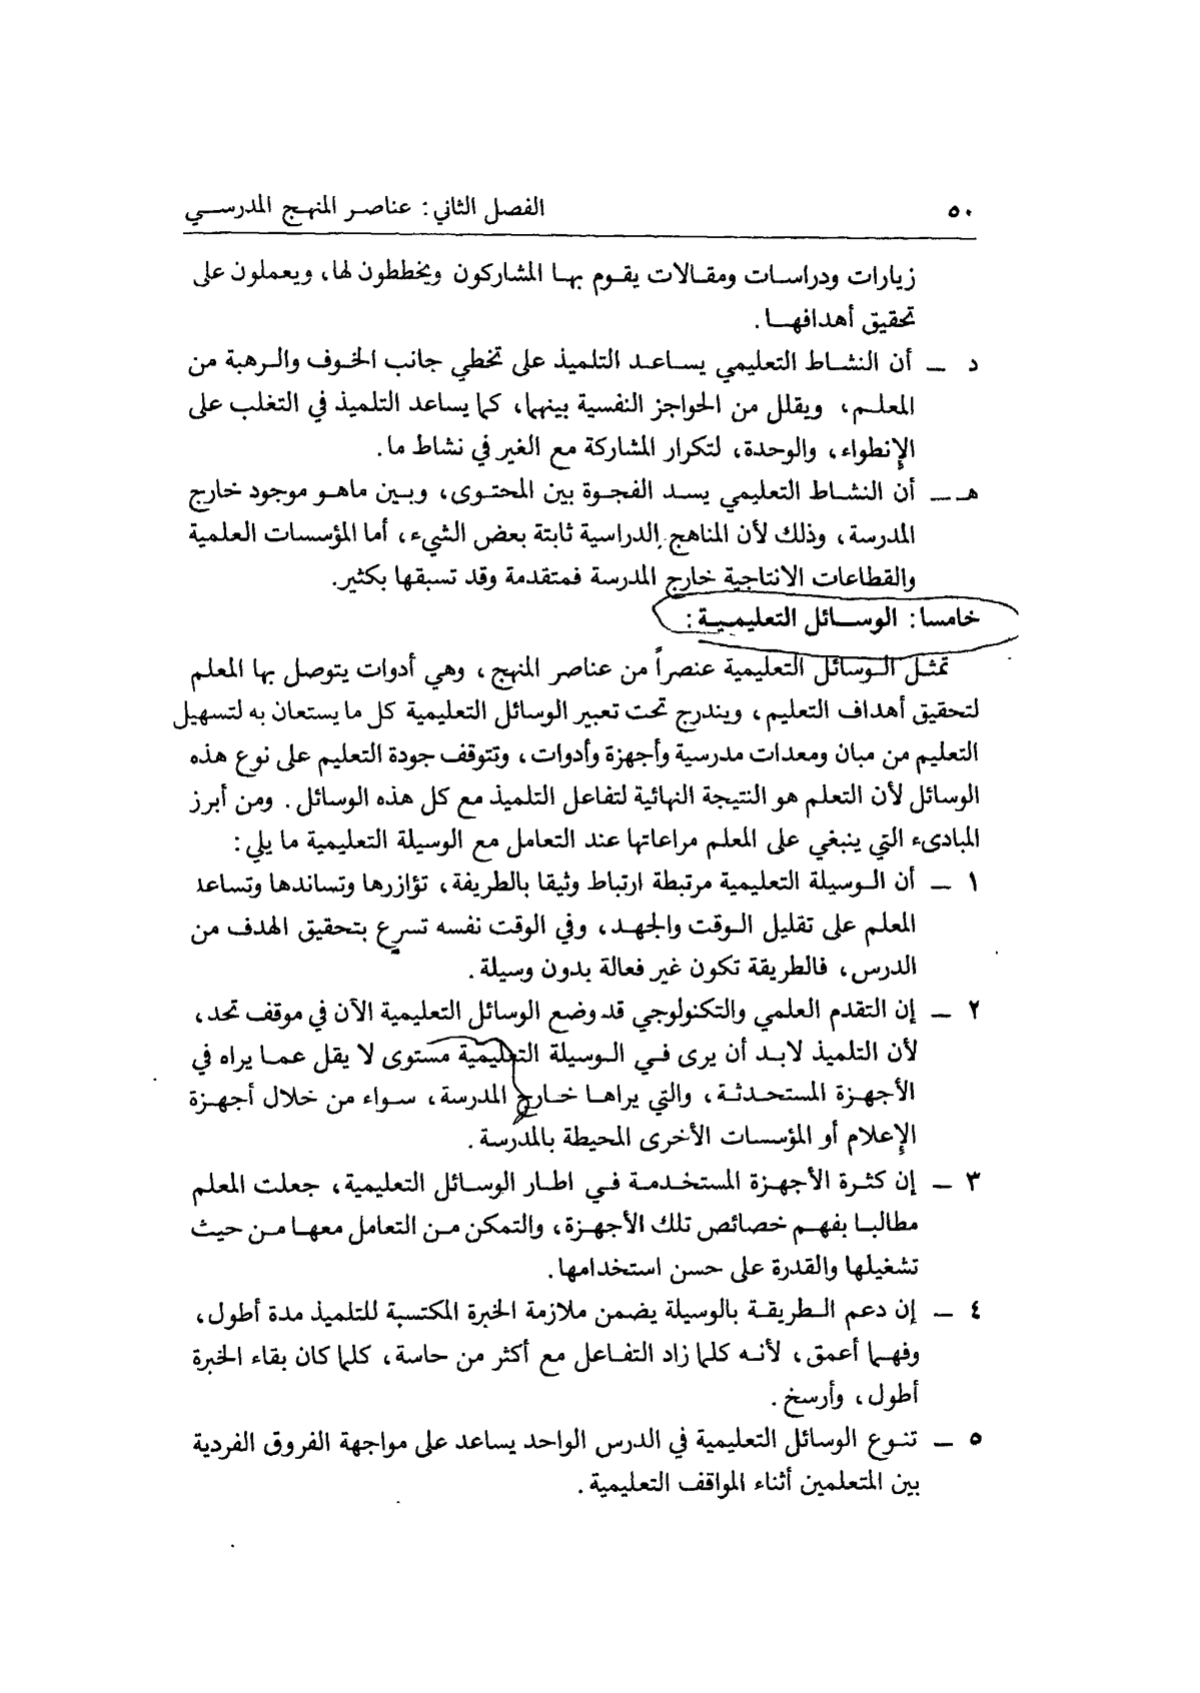 ٥٠ الفصل الثاني: عناصر المنهج المدرسي
زيارات ودراسات ومقالات يقوم بها المشاركون ويخططون لها، ويعملون على
تحقيق أهدافها.
د — أن النشاط التعليمي يساعد التلميذ على تخطي جانب الخوف والرهبة من
المعلم، ويقلل من الحواجز النفسية بينهما، كما يساعد التلميذ في التغلب على
الإنطواء، والوحدة، لتكرار المشاركة مع الغير في نشاط ما.
هـ — أن النشاط التعليمي يسد الفجوة بين المحتوى، وبين ماهو موجود خارج
المدرسة، وذلك لأن المناهج الدراسية ثابتة بعض الشيء، أما المؤسسات العلمية
والقطاعات الانتاجية خارج المدرسة فمتقدمة وقد تسبقها بكثير.
خامسا: الوسائل التعليمية:
تمثل الوسائل التعليمية عنصراً من عناصر المنهج، وهي أدوات يتوصل بها المعلم
لتحقيق أهداف التعليم، ويندرج تحت تعبير الوسائل التعليمية كل ما يستعان به لتسهيل
التعليم من مبان ومعدات مدرسية وأجهزة وأدوات، وتتوقف جودة التعليم على نوع هذه
الوسائل لأن التعلم هو النتيجة النهائية لتفاعل التلميذ مع كل هذه الوسائل. ومن أبرز
المبادىء التي ينبغي على المعلم مراعاتها عند التعامل مع الوسيلة التعليمية ما يلي:
١ — أن الوسيلة التعليمية مرتبطة ارتباط وثيقا بالطريفة، تؤازرها وتساندها وتساعد
المعلم على تقليل الوقت والجهد، وفي الوقت نفسه تسرع بتحقيق الهدف من
الدرس، فالطريقة تكون غير فعالة بدون وسيلة.
٢ — إن التقدم العلمي والتكنولوجي قد وضع الوسائل التعليمية الآن في موقف تحد،
لأن التلميذ لابد أن يرى في الوسيلة التعليمية مستوى لا يقل عما يراه في
الأجهزة المستحدثة، والتي يراها خارج المدرسة، سواء من خلال أجهزة
الإعلام أو المؤسسات الأخرى المحيطة بالمدرسة.
٣ — إن كثرة الأجهزة المستخدمة في اطار الوسائل التعليمية، جعلت المعلم
مطالبا بفهم خصائص تلك الأجهزة، والتمكن من التعامل معها من حيث
تشغيلها والقدرة على حسن استخدامها.
٤ — إن دعم الطريقة بالوسيلة يضمن ملازمة الخبرة المكتسبة للتلميذ مدة أطول،
وفهما أعمق، لأنه كلما زاد التفاعل مع أكثر من حاسة، كلما كان بقاء الخبرة
أطول، وأرسخ.
٥ — تنوع الوسائل التعليمية في الدرس الواحد يساعد على مواجهة الفروق الفردية
بين المتعلمين أثناء المواقف التعليمية.